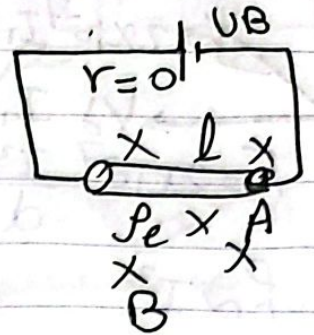 UB
r=0
X l X
ρe X A
X X
B